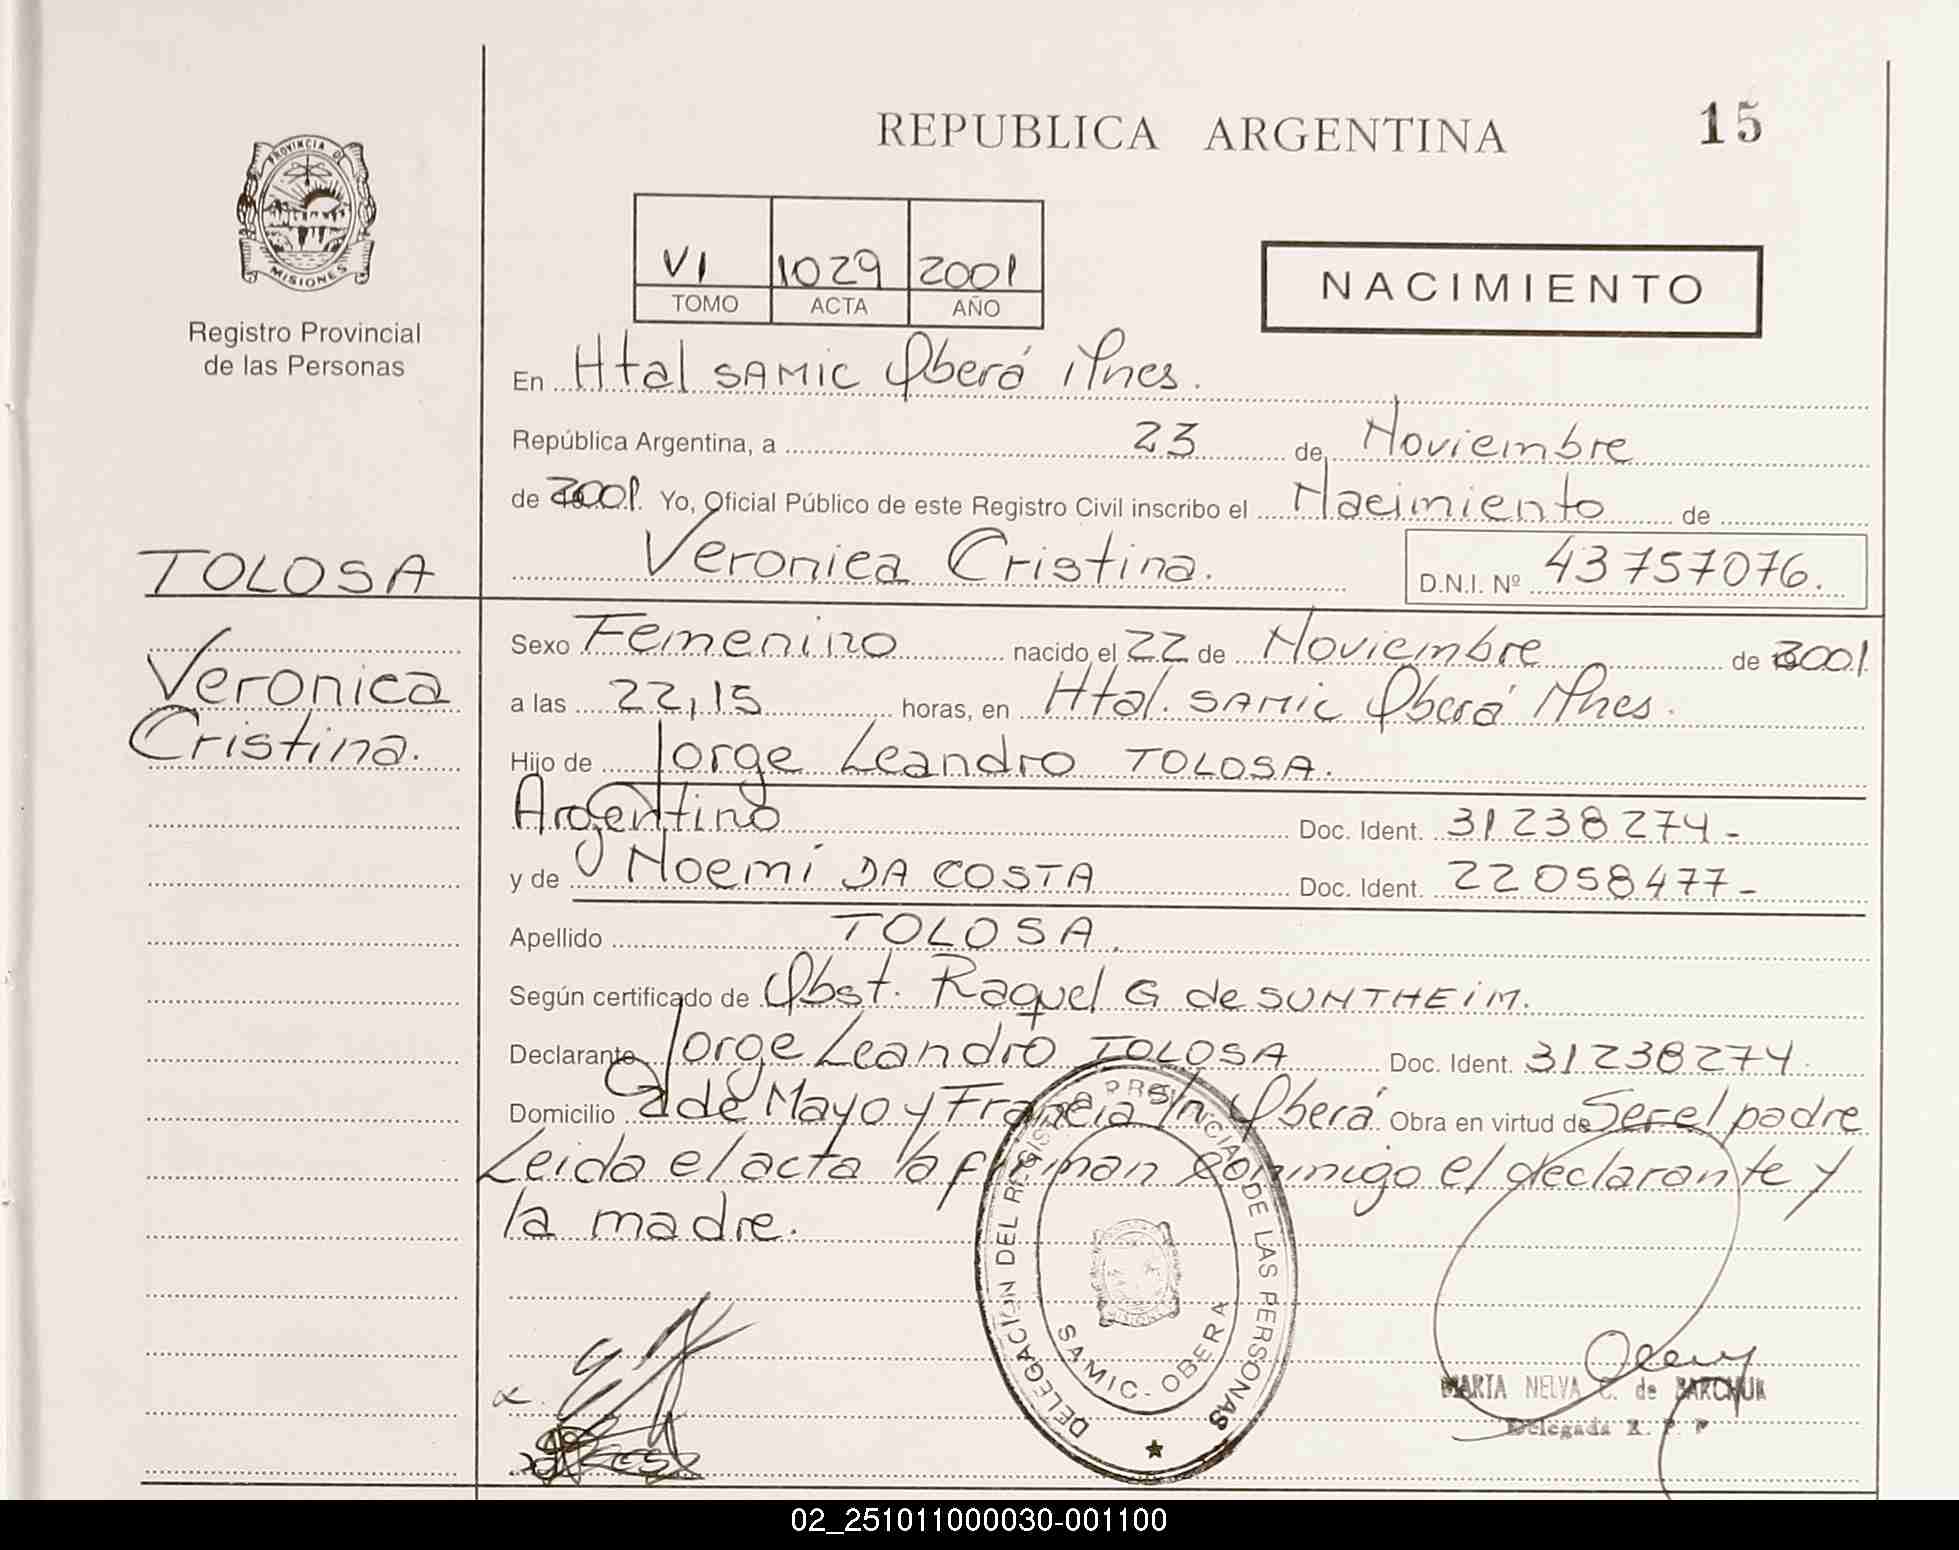 REPUBLICA ARGENTINA
15
PROVINCIA DE
MISIONES
Registro Provincial
de las Personas
VI 1029 2001
TOMO ACTA AÑO
NACIMIENTO
En Htal SAMIC Oberá Mnes.
República Argentina, a 23 de Noviembre
de 2001. Yo, Oficial Público de este Registro Civil inscribo el Nacimiento de
Veronica Cristina.
D.N.I. Nº 43757076.
TOLOSA
Veronica
Cristina.
Sexo Femenino nacido el 22 de Noviembre de 2001.
a las 22,15 horas, en Htal. SAMIC Oberá Mnes.
Hijo de Jorge Leandro TOLOSA.
Argentino Doc. Ident. 31238274-
y de Noemí DA COSTA Doc. Ident. 22058477-
Apellido TOLOSA.
Según certificado de Obst. Raquel G de SUNTHEIM.
Declarante Jorge Leandro TOLOSA Doc. Ident. 31238274.
Domicilio 2 de Mayo y Francia S/n Oberá Obra en virtud de Ser el padre
Leida el acta la firman conmigo el declarante y
la madre.
DELEGACIÓN DEL REGISTRO PROVINCIAL DE LAS PERSONAS
SAMIC - OBERA
MARTA NELVA C. de BARCHUK
Delegada R. P. P
02_251011000030-001100